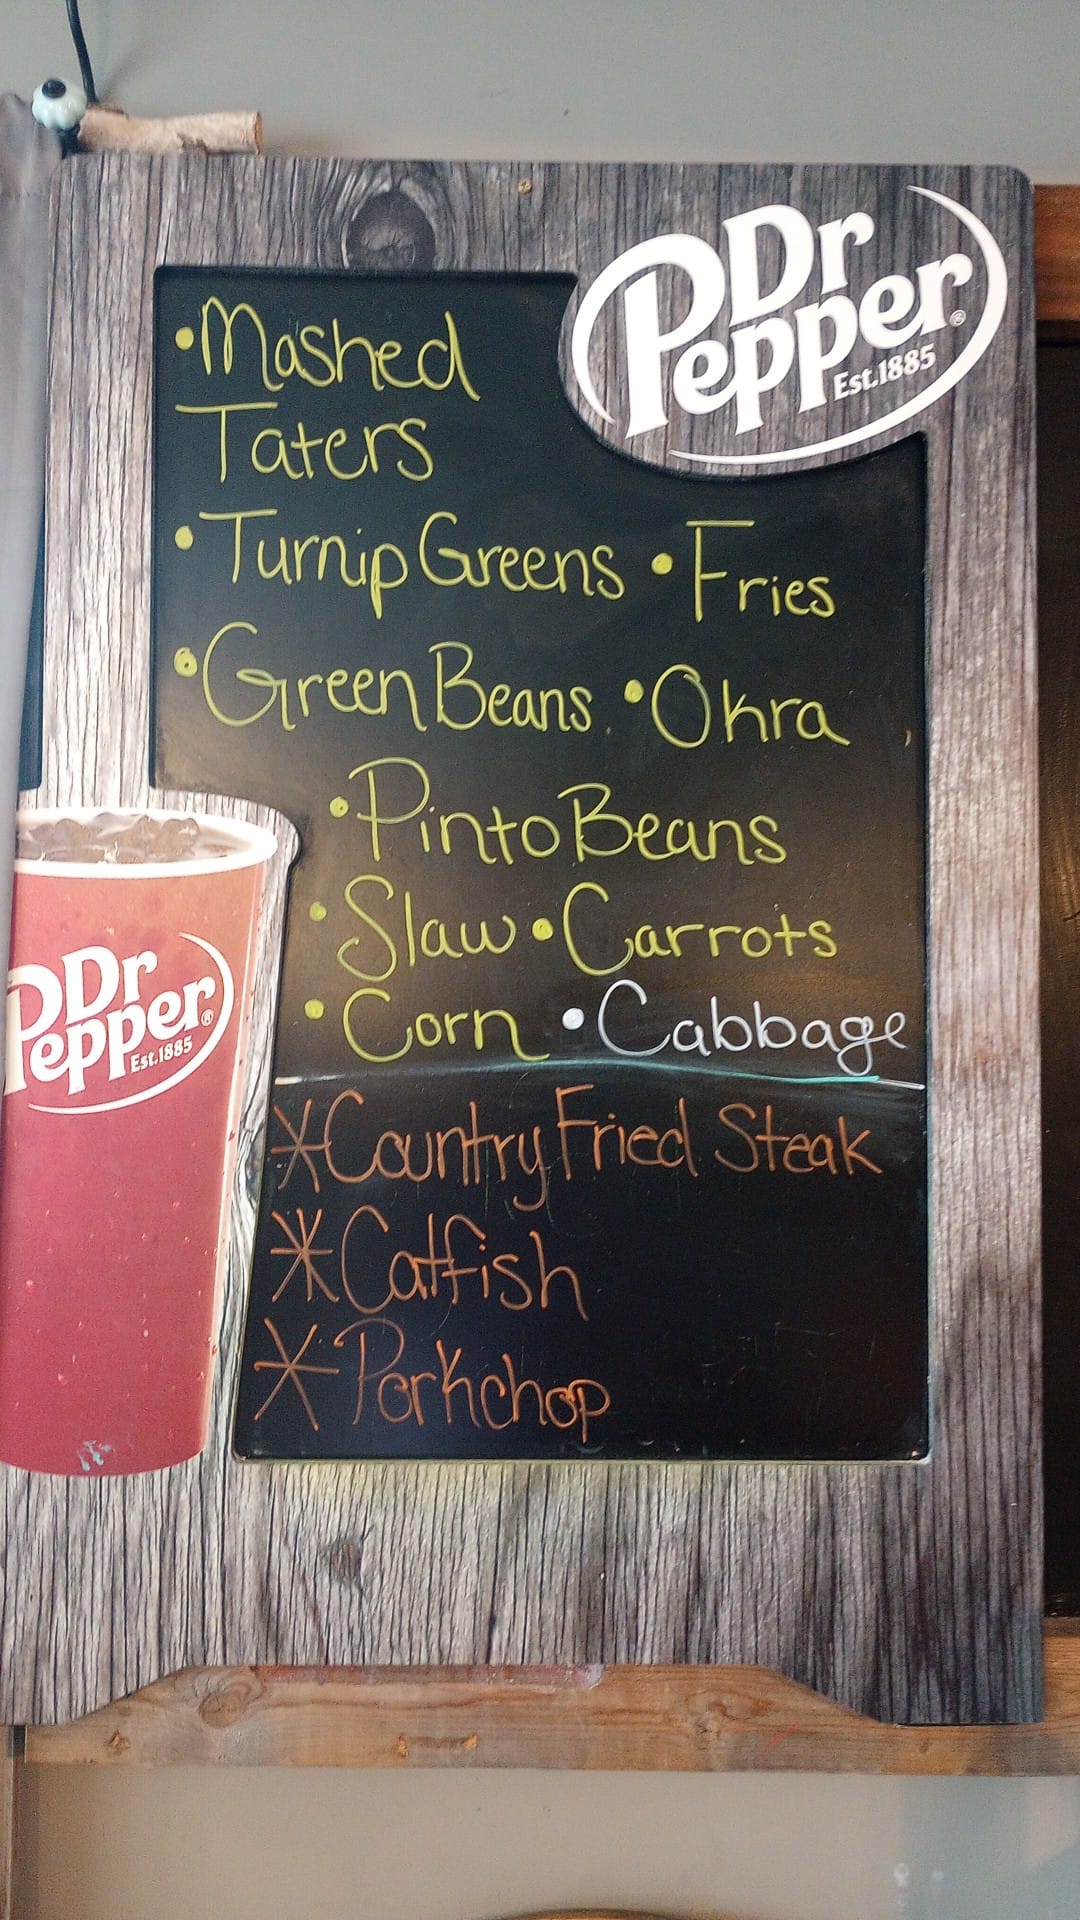 Dr
Pepper®
Est.1885
•Mashed
Taters
•Turnip Greens •Fries
•Green Beans •Okra
•Pinto Beans
•Slaw •Carrots
•Corn •Cabbage
*Country Fried Steak
*Catfish
*Porkchop
Dr
Pepper®
Est.1885